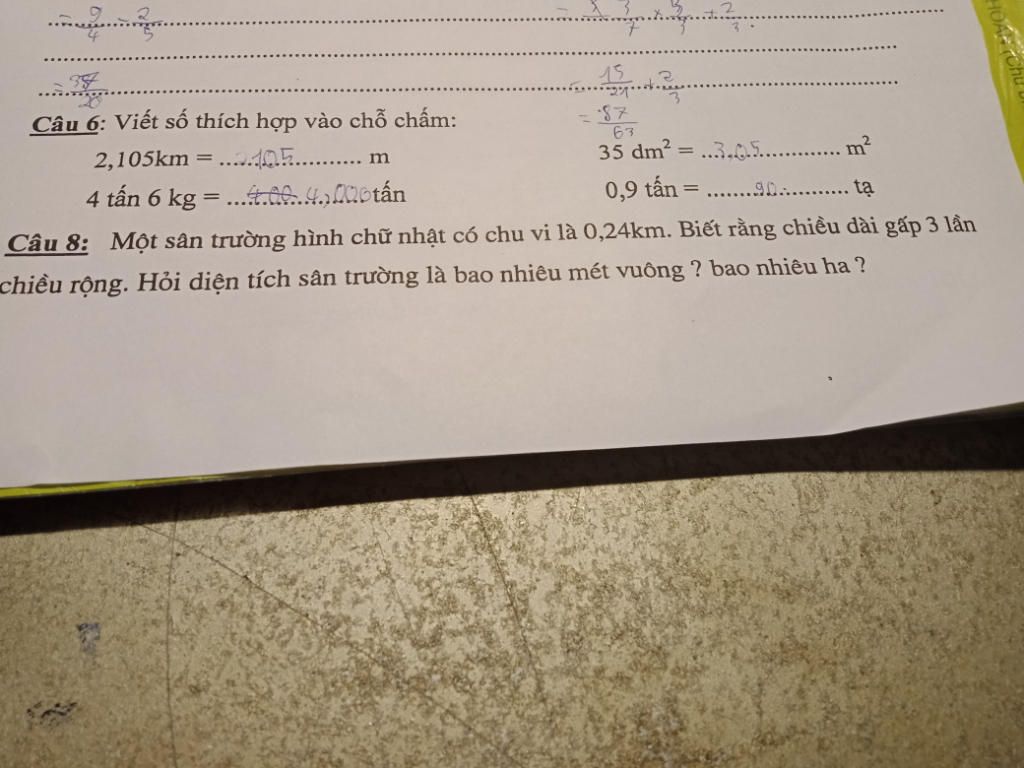 = 9/4 - 2/5
= 3/7 × 5/3 + 2/3.
= 37/20
= 15/21 + 2/3
= 87/63
Câu 6: Viết số thích hợp vào chỗ chấm:
2,105km = ...2105............... m 35 dm² = ...3,05............... m²
4 tấn 6 kg = ............4,006 tấn 0,9 tấn = ........90........... tạ
Câu 8: Một sân trường hình chữ nhật có chu vi là 0,24km. Biết rằng chiều dài gấp 3 lần
chiều rộng. Hỏi diện tích sân trường là bao nhiêu mét vuông ? bao nhiêu ha ?